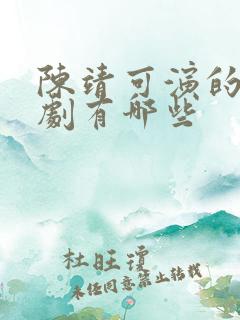 陳靖可演的
劇有哪些
杜旺瓊
未經同意禁止轉載